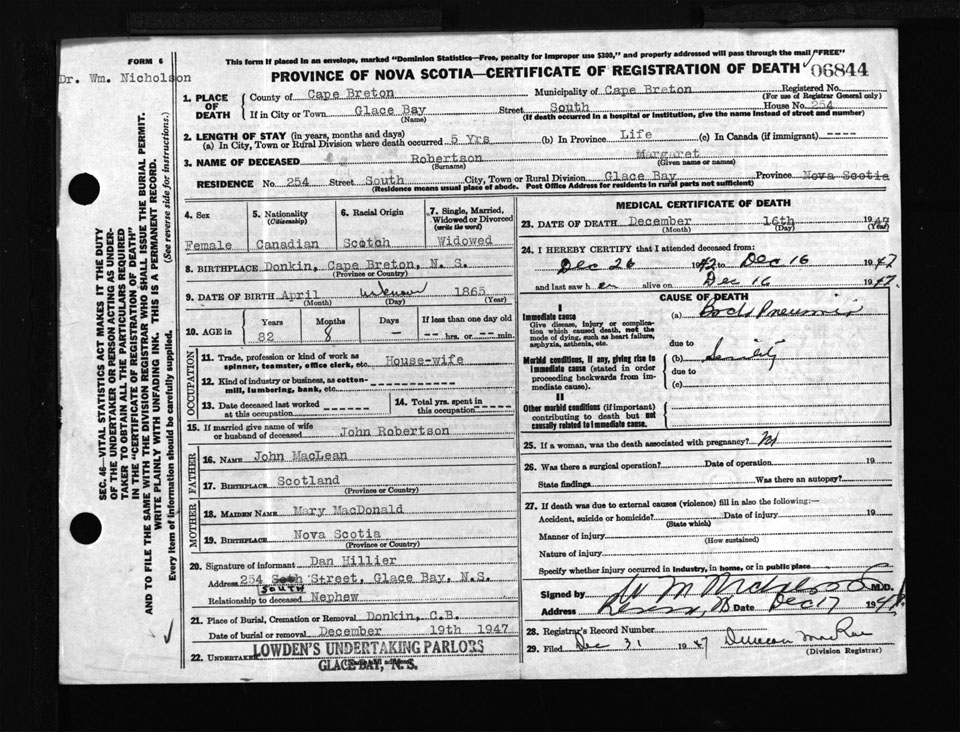 FORM 6
This form if placed in an envelope, marked "Dominion Statistics—Free, penalty for improper use $300," and properly addressed will pass through the mail "FREE"
Dr. Wm. Nicholson
PROVINCE OF NOVA SCOTIA—CERTIFICATE OF REGISTRATION OF DEATH 06844
1. PLACE OF DEATH
County of Cape Breton Municipality of Cape Breton Registered No.
(For use of Registrar General only)
If in City or Town Glace Bay Street South House No. 254
(Name) (If death occurred in a hospital or institution, give the name instead of street and number)
2. LENGTH OF STAY (in years, months and days)
(a) In City, Town or Rural Division where death occurred 5 Yrs (b) In Province Life (c) In Canada (if immigrant) ----
3. NAME OF DECEASED Robertson Margaret
(Surname) (Given name or names)
RESIDENCE No. 254 Street South City, Town or Rural Division Glace Bay Province Nova Scotia
(Residence means usual place of abode. Post Office Address for residents in rural parts not sufficient)
4. Sex
Female
5. Nationality
(Citizenship)
Canadian
6. Racial Origin
Scotch
7. Single, Married, Widowed or Divorced
(write the word)
Widowed
8. BIRTHPLACE Donkin, Cape Breton, N. S.
(Province or Country)
9. DATE OF BIRTH April unknown 1865
(Month) (Day) (Year)
10. AGE in
Years Months Days If less than one day old
82 8 — hrs. or min.
OCCUPATION
11. Trade, profession or kind of work as spinner, teamster, office clerk, etc. House-wife
12. Kind of industry or business, as cotton-mill, lumbering, bank, etc.
13. Date deceased last worked at this occupation
14. Total yrs. spent in this occupation
15. If married give name of wife or husband of deceased John Robertson
FATHER
16. NAME John MacLean
17. BIRTHPLACE Scotland
(Province or Country)
MOTHER
18. MAIDEN NAME Mary MacDonald
19. BIRTHPLACE Nova Scotia
(Province or Country)
20. Signature of informant Dan Hillier
Address 254 South Street, Glace Bay, N.S.
Relationship to deceased Nephew
21. Place of Burial, Cremation or Removal Donkin, C.B.
Date of burial or removal December 19th 1947
22. Undertaker LOWDEN'S UNDERTAKING PARLORS
GLACE BAY, N. S.
MEDICAL CERTIFICATE OF DEATH
23. DATE OF DEATH December 16th 1947
(Month) (Day) (Year)
24. I HEREBY CERTIFY that I attended deceased from:
Dec 26 1942 to Dec 16 1947
and last saw her alive on Dec 16 1947.
CAUSE OF DEATH
I
Immediate cause
Give disease, injury or complication which caused death, not the mode of dying, such as heart failure, asphyxia, asthenia, etc.
(a) Pneumonia
due to
Morbid conditions, if any, giving rise to immediate cause (stated in order proceeding backwards from immediate cause).
(b) Senility
due to
(c)
II
Other morbid conditions (if important) contributing to death but not causally related to immediate cause.
25. If a woman, was the death associated with pregnancy?
26. Was there a surgical operation? Date of operation 19
State findings Was there an autopsy?
27. If death was due to external causes (violence) fill in also the following:—
Accident, suicide or homicide? Date of injury 19
(State which)
Manner of injury
(How sustained)
Nature of injury
Specify whether injury occurred in industry, in home, or in public place
Signed by W M Nicholson M.D.
Address Date Dec 17 1947
28. Registrar's Record Number
29. Filed Dec 31 1947 Duncan MacRae
(Division Registrar)
SEC. 46—VITAL STATISTICS ACT MAKES IT THE DUTY
OF THE UNDERTAKER OR PERSON ACTING AS UNDER-
TAKER TO OBTAIN ALL THE PARTICULARS REQUIRED
IN THE "CERTIFICATE OF REGISTRATION OF DEATH"
AND TO FILE THE SAME WITH THE DIVISION REGISTRAR WHO SHALL ISSUE THE BURIAL PERMIT.
WRITE PLAINLY WITH UNFADING INK. THIS IS A PERMANENT RECORD.
Every item of information should be carefully supplied. (See reverse side for instructions.)